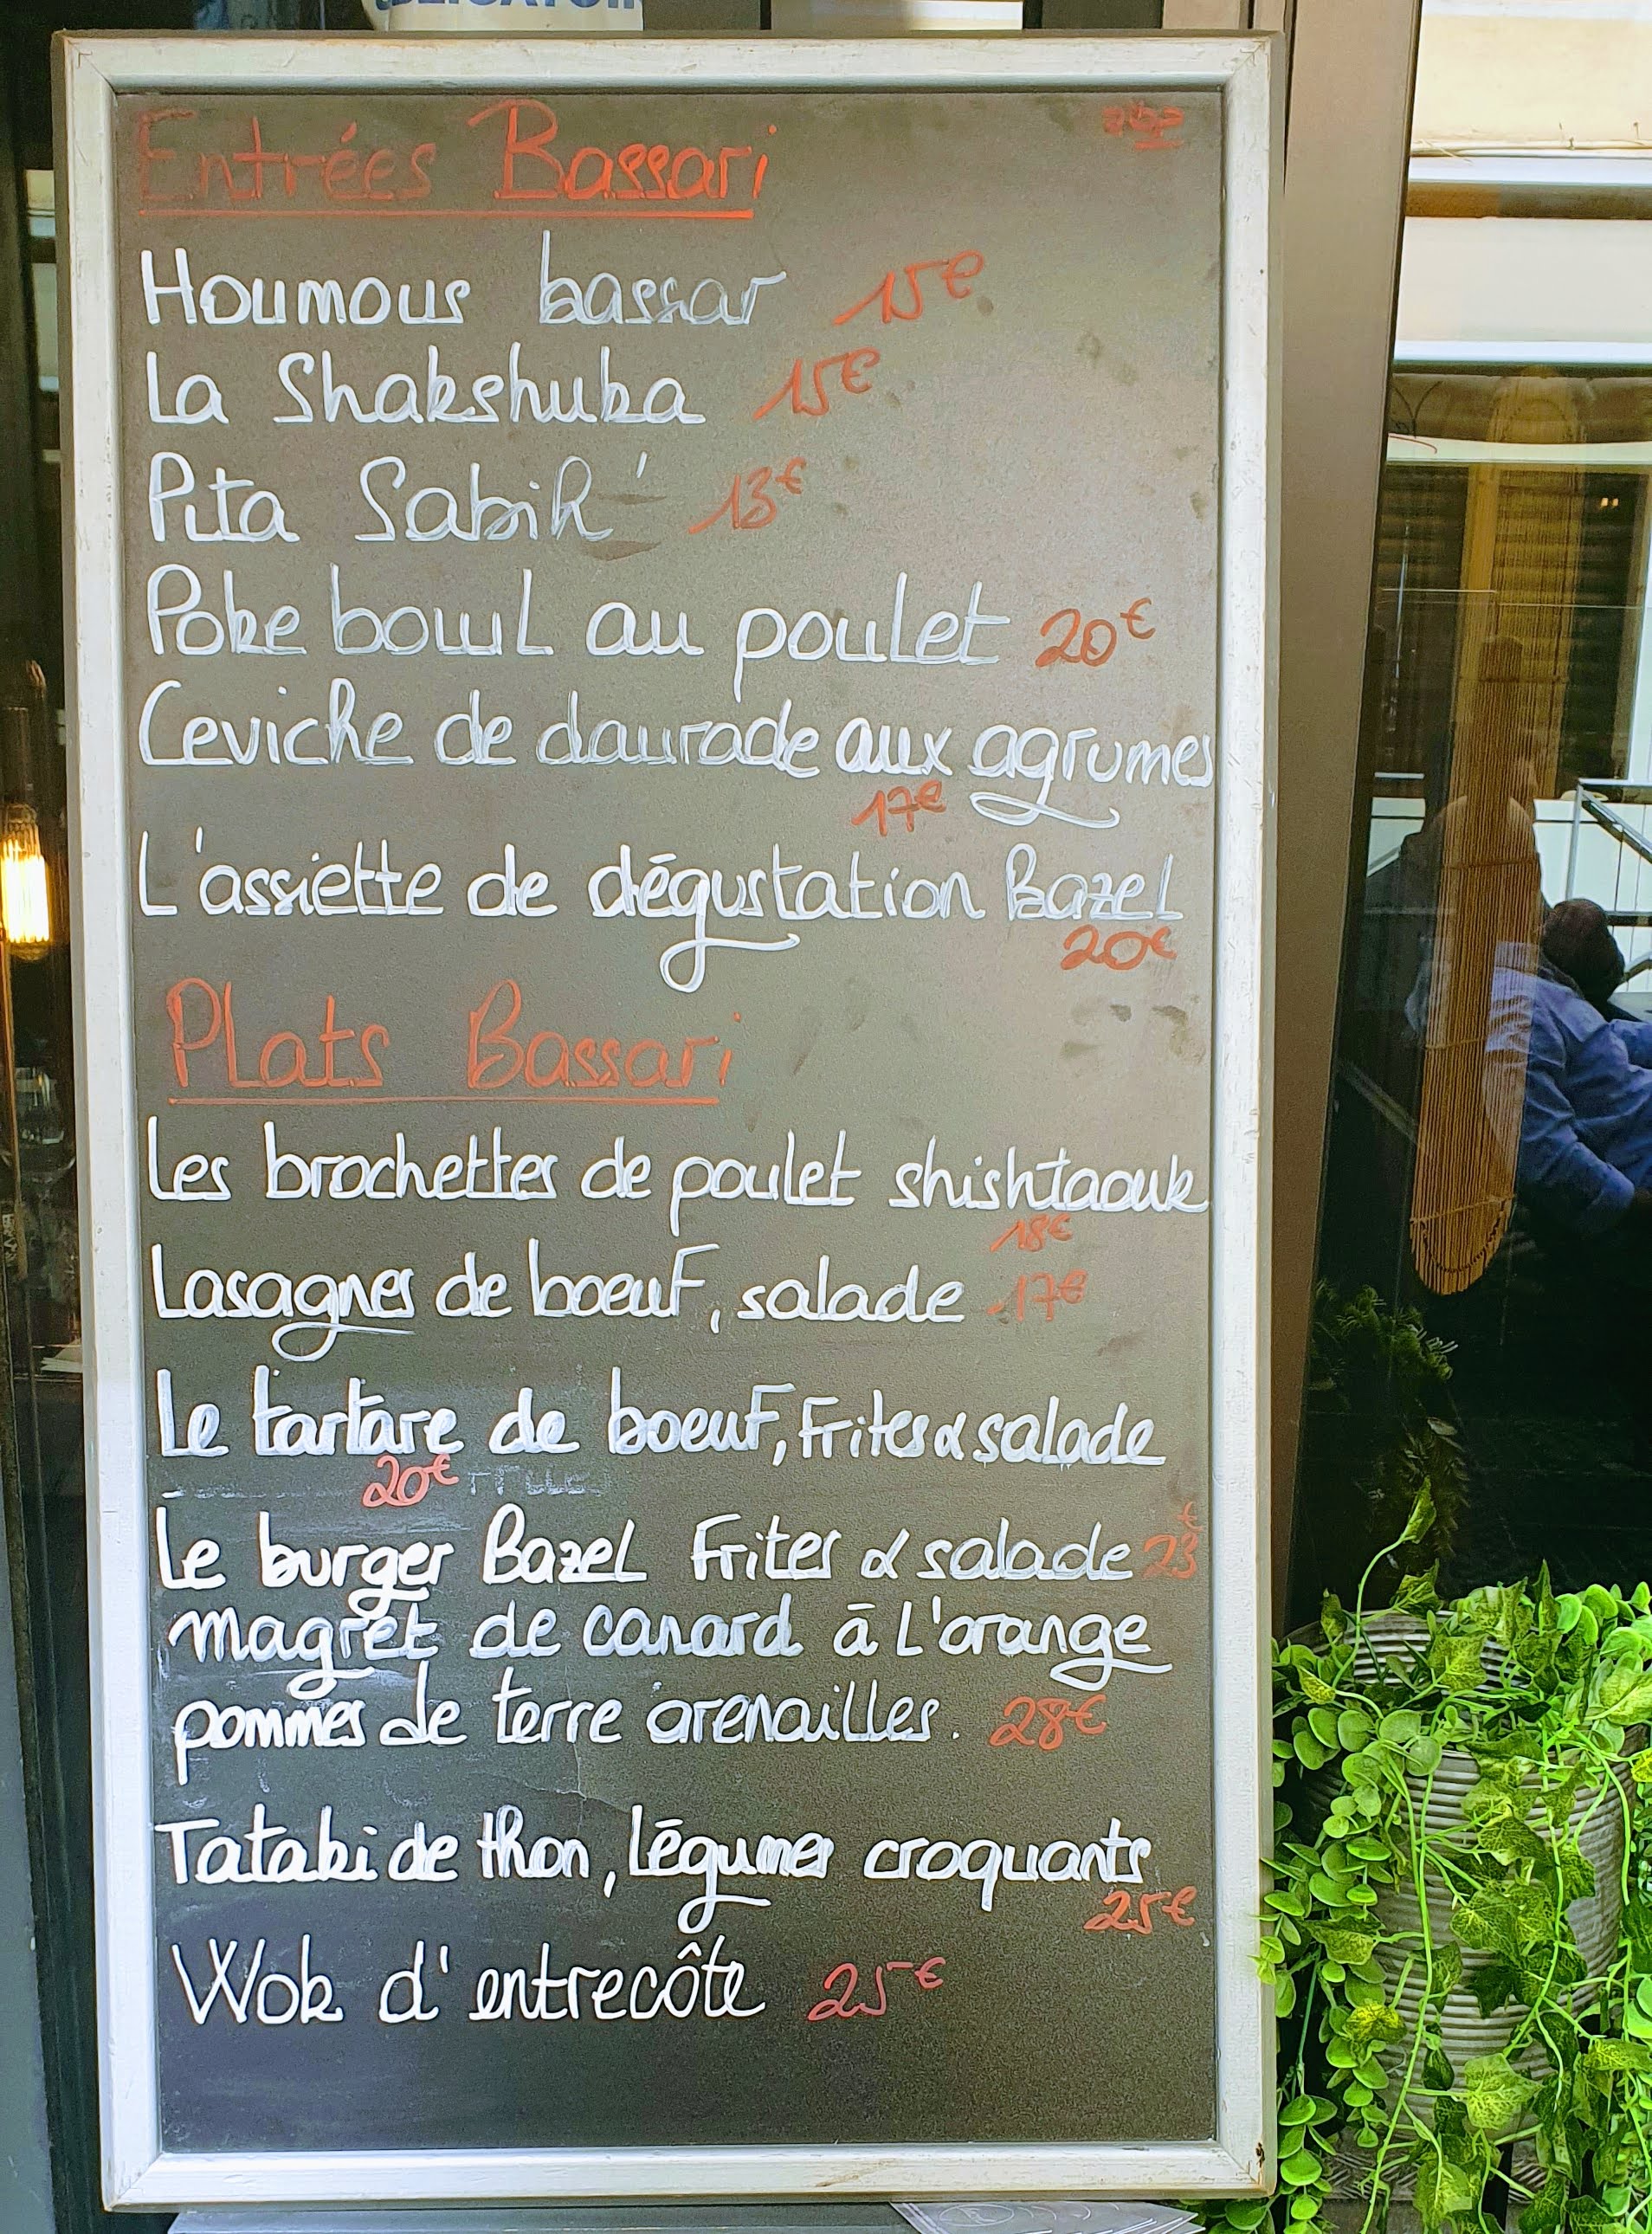 Entrées Bassari
Houmous bassar 15€
La Shakshuka 15€
Pita Sabih' 13€
Poke bowl au poulet 20€
Ceviche de daurade aux agrumes
17€
L'assiette de dégustation Bazel
20€
Plats Bassari
Les brochettes de poulet shishtaouk
18€
Lasagnes de boeuf, salade 17€
Le tartare de boeuf, Frites & salade
20€
Le burger Bazel Frites & salade 23€
magret de canard à L'orange
pommes de terre grenailles. 28€
Tataki de thon, légumes croquants
25€
Wok d'entrecôte 25€